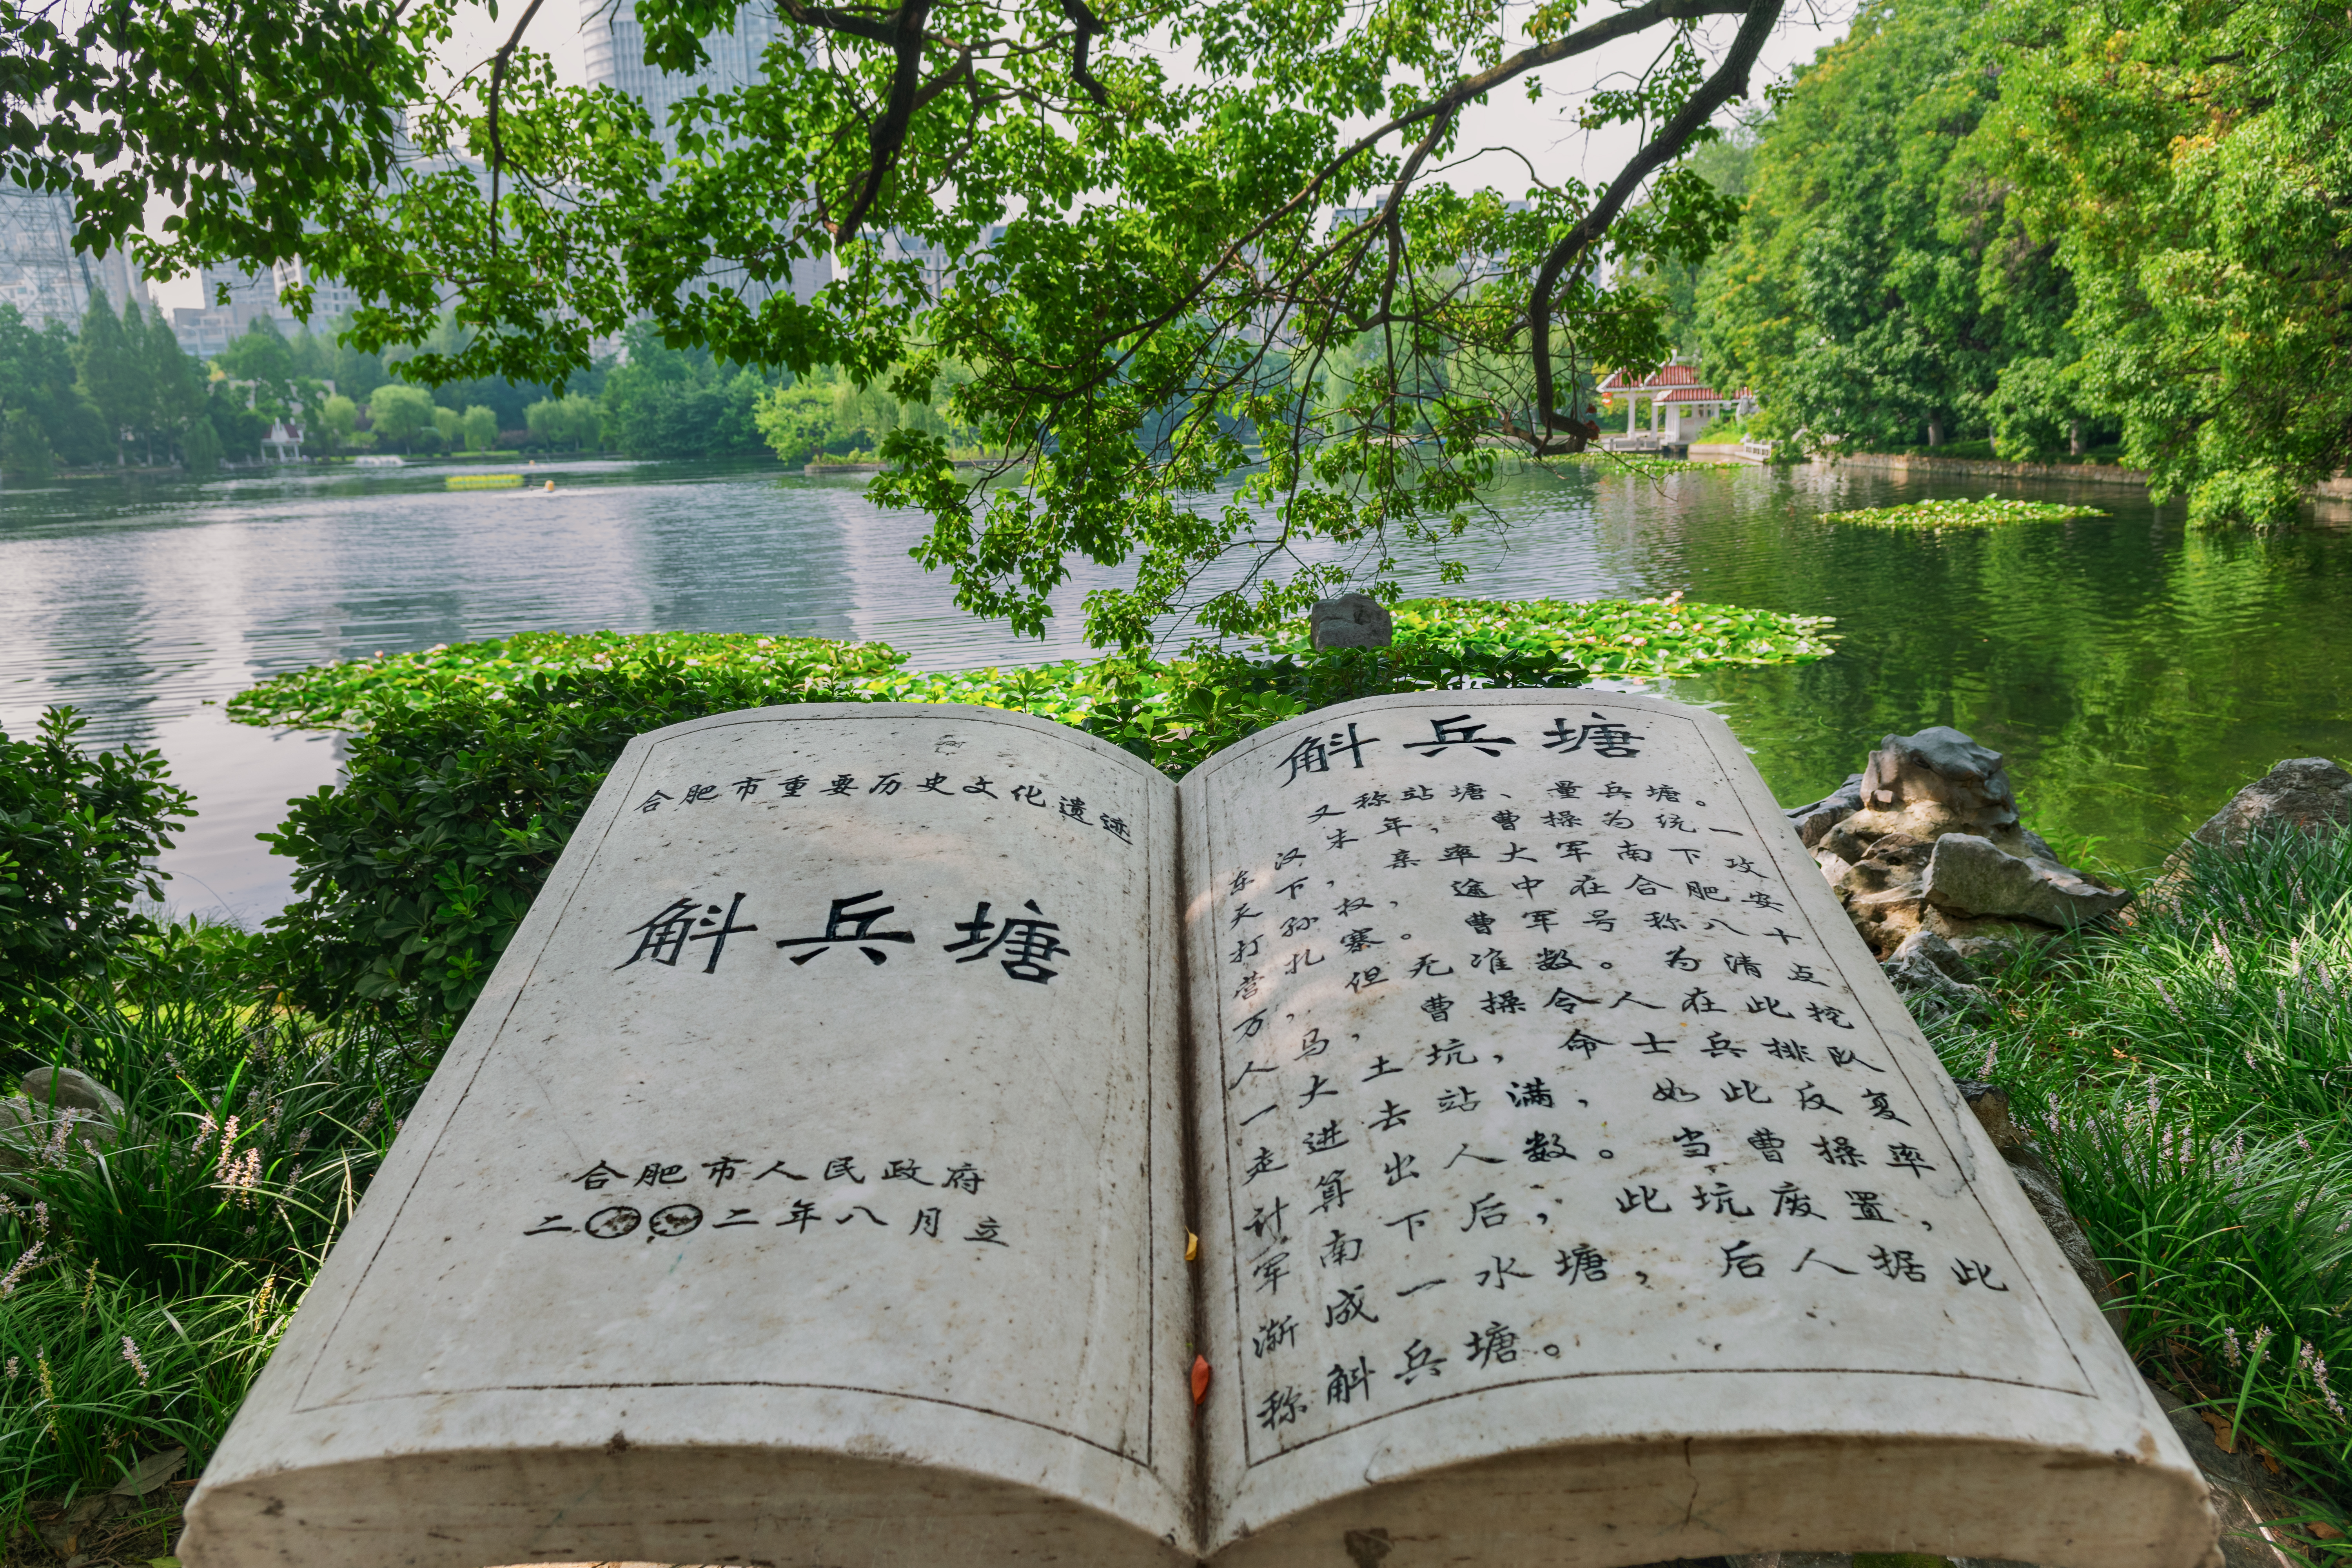 合肥市重要历史文化遗迹
斛兵塘
合肥市人民政府
二〇〇二年八月立
斛兵塘
又称站塘、量兵塘。
东汉末年，曹操为统一
天下，亲率大军南下攻
打孙权，途中在合肥安
营扎寨。曹军号称八十
万，但无准数。为清点
人马，曹操令人在此挖
一大土坑，命士兵排队
走进去站满，如此反复
计算出人数。当曹操率
军南下后，此坑废置，
渐成一水塘，后人据此
称斛兵塘。